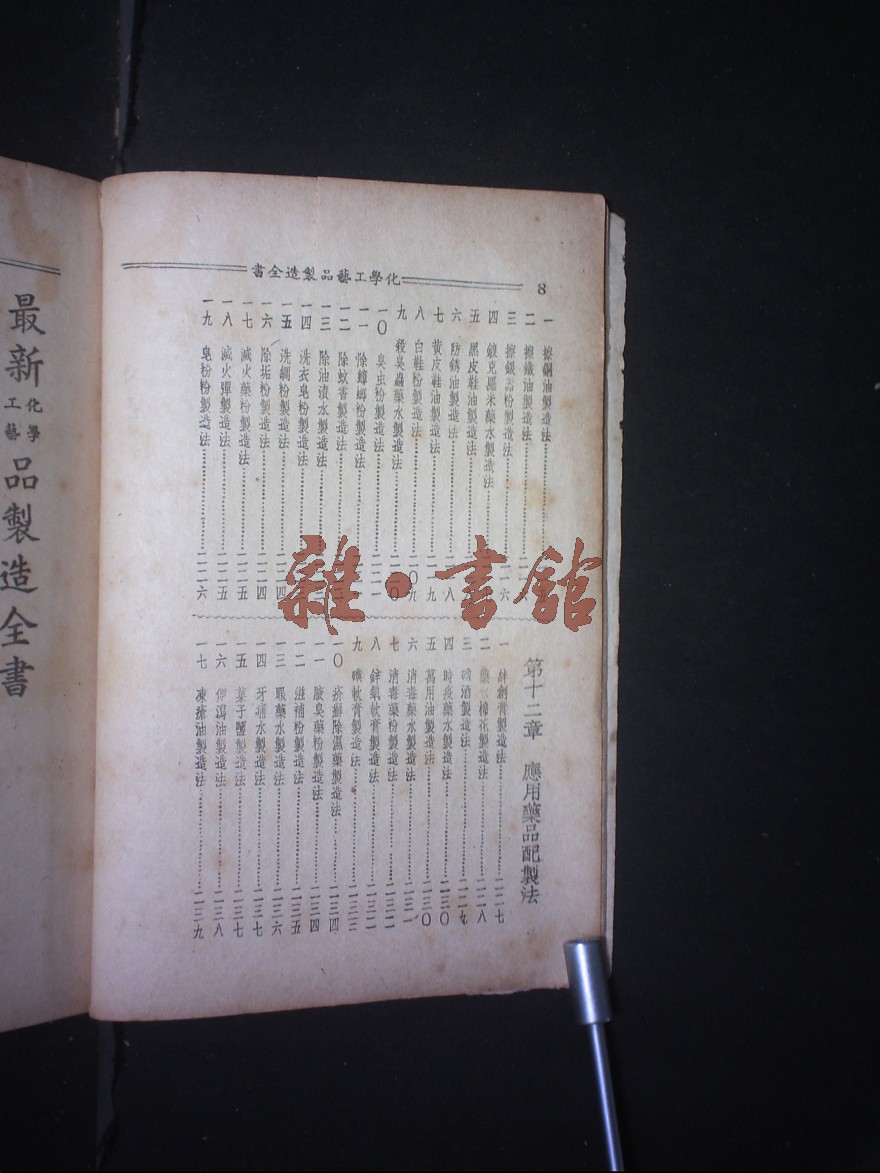 化學工藝品製造全書
8
一 擦銅油製造法
二 擦鐵油製造法
三 擦銀器粉製造法 一一六
四 鍍克羅米藥水製造法
五 黑皮鞋油製造法
六 防銹油製造法 八
七 黃皮鞋油製造法 一一九
八 白鞋粉製造法 〇九
九 殺臭蟲藥水製造法
一〇 臭虫粉製造法 一二一
一一 除蟑螂粉製造法
一二 除蚊香製造法
一三 除油漬水製造法
一四 洗衣皂粉製造法
一五 洗綢粉製造法 四
一六 除垢粉製造法 一二四
一七 滅火藥粉製造法 一二五
一八 滅火彈製造法 一二五
一九 皂粉粉製造法 一二六
第十二章 應用藥品配製法
一 絆創膏製造法 一二七
二 藥 棉花製造法 一二八
三 碘酒製造法 一二九
四 時疫藥水製造法 一三〇
五 萬用油製造法 一三〇
六 消毒藥水製造法 一三一
七 消毒藥粉製造法 一三二
八 鋅氧軟膏製造法 一三二
九 磺軟膏製造法 一三三
一〇 疥癬除濕藥製造法 一三四
一一 腋臭藥粉製造法 一三四
一二 滋補粉製造法 一三五
一三 眼藥水製造法 一三六
一四 牙痛水製造法 一三七
一五 菓子鹽製造法 一三七
一六 瀉油製造法 一三八
一七 凍瘡油製造法 一三九
最新化學工藝品製造全書
雜·書館